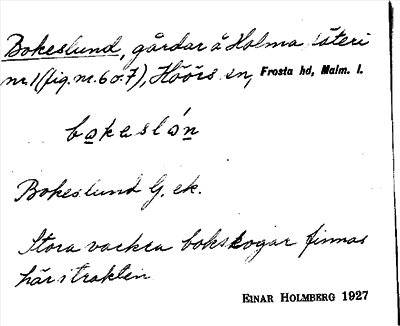 Bokeslund, gårdar å Holma säteri
nr. 1 (fig. nr. 6 o. 7), Höörs sn, Frosta hd, Malm. l.
bo̲keslón̲
Bokeslund G. ek.
Stora vackra bokskogar finnas
här i trakten
EINAR HOLMBERG 1927